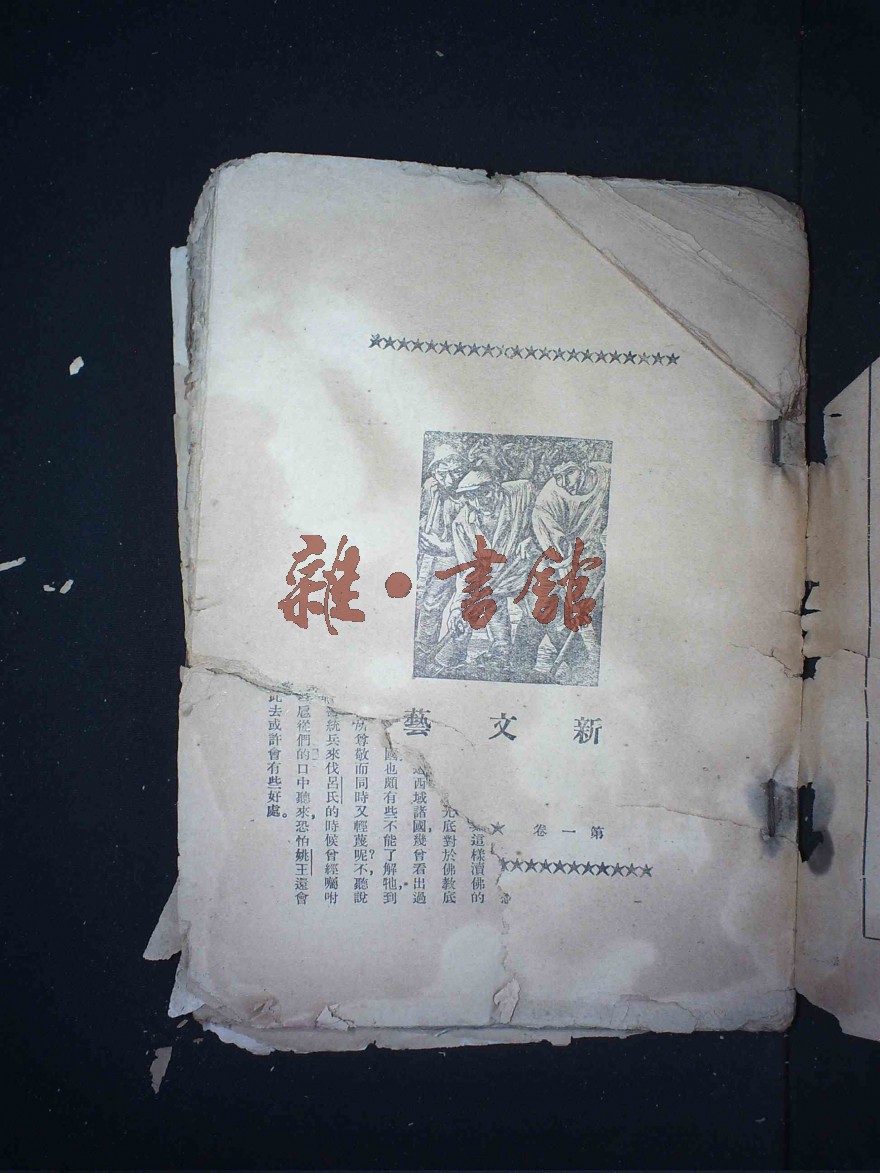 雜·書館
新文藝
第一卷
這樣瀆佛的
光底對於佛教底
西域諸國,幾曾看出過
國也頗有些不能了解牠,到
所尊敬而同時又輕蔑呢?不,聽說
統兵來伐呂氏的時候曾經囑咐
扈從們的口中聽來,恐怕姚王還會
此去或許會有些好處。